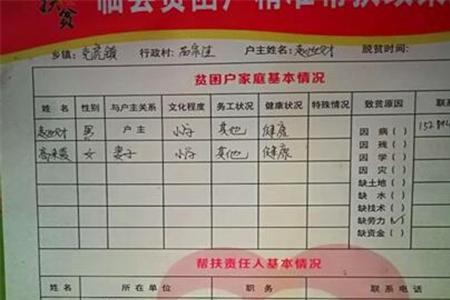 扶贫 临县贫困户精准帮扶政策
乡镇: 克虎镇 行政村: 户主姓名: 脱贫时间:
贫困户家庭基本情况
姓名 性别 与户主关系 文化程度 务工状况 健康状况 特殊情况 致贫原因 联系
男 户主 小学 其他 健康 因 病( ) 152
女 妻子 小学 其他 健康 因 残( )
因 学( )
因 灾( )
缺土地( )
缺 水( )
缺技术( )
缺劳力(✓)
缺资金( )
帮扶责任人基本情况
姓名 所在单位 职务 联系电话